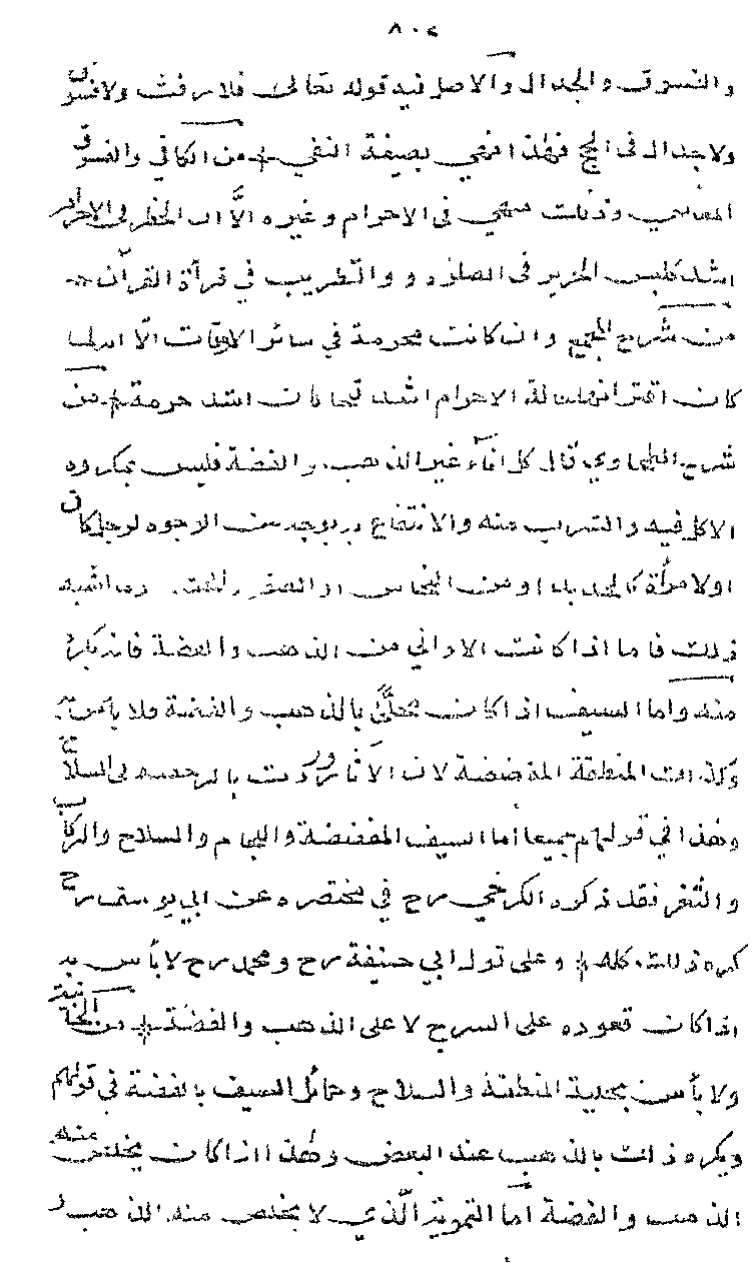 والفسوق والجدال والاصل فيه قوله تعالى فلا رفث ولا فسوق
ولا جدال في الحج فهذا نهي بصيغة النفي من الكافي والفسوق
المعاصي وذلك منهي في الاحرام وغيره الَّا ان الحظر في الاحرام
اشد كلبس الحرير في الصلوة والتطريب في قرآة القرآن
من شرح المجمع وان كانت محرمة في سائر الاوقات الّا انها
كان اقترانها الاحرام اشد فكانت اشد حرمة من
شرح الطحاوي قال كل انآء غير الذهب والفضة فليس بمكروه
الاكل فيه والشرب منه والانتفاع به بوجه من الوجوه لرجل كان
او لامرأة كالحديد او من النحاس او الصفر وما اشبه
ذلك فاما اذا كانت الاواني من الذهب والفضة فانه يكره
منه واما السيف اذا كان محلَّى بالذهب والفضة فلا بأس به
وكذلك المنطقة المفضضة لان الآثار وردت بالرخصة في السلاح
وهذا في قولهم جميعا اما السيف المفضضة واللجام والسلاح والركاب
والثغر فقد ذكره الكرخي رح في مختصره عن ابي يوسف رح
كره ذلك كله وعلى قول ابي حنيفة رح ومحمد رح لا بأس به
اذا كان قعوده على السرج لا على الذهب والفضة من الخانية
ولا بأس بحلية المنطقة والسلاح وحمائل السيف بالفضة في قولهم
ويكره ذلك بالذهب عند البعض وهذا اذا كان يخلص منه
الذهب والفضة امّا التمويه الّذي لا يخلص منه الذهب و